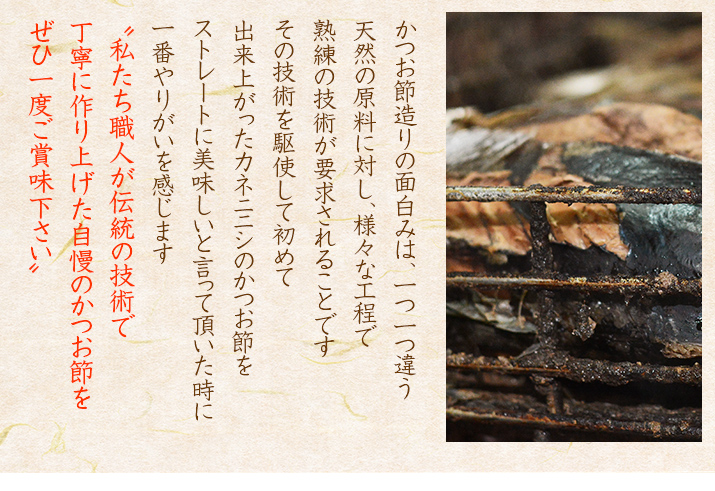 かつお節造りの面白みは、一つ一つ違う
天然の原料に対し、様々な工程で
熟練の技術が要求されることです
その技術を駆使して初めて
出来上がったカネニニシのかつお節を
ストレートに美味しいと言って頂いた時に
一番やりがいを感じます
〝私たち職人が伝統の技術で
丁寧に作り上げた自慢のかつお節を
ぜひ一度ご賞味下さい〟